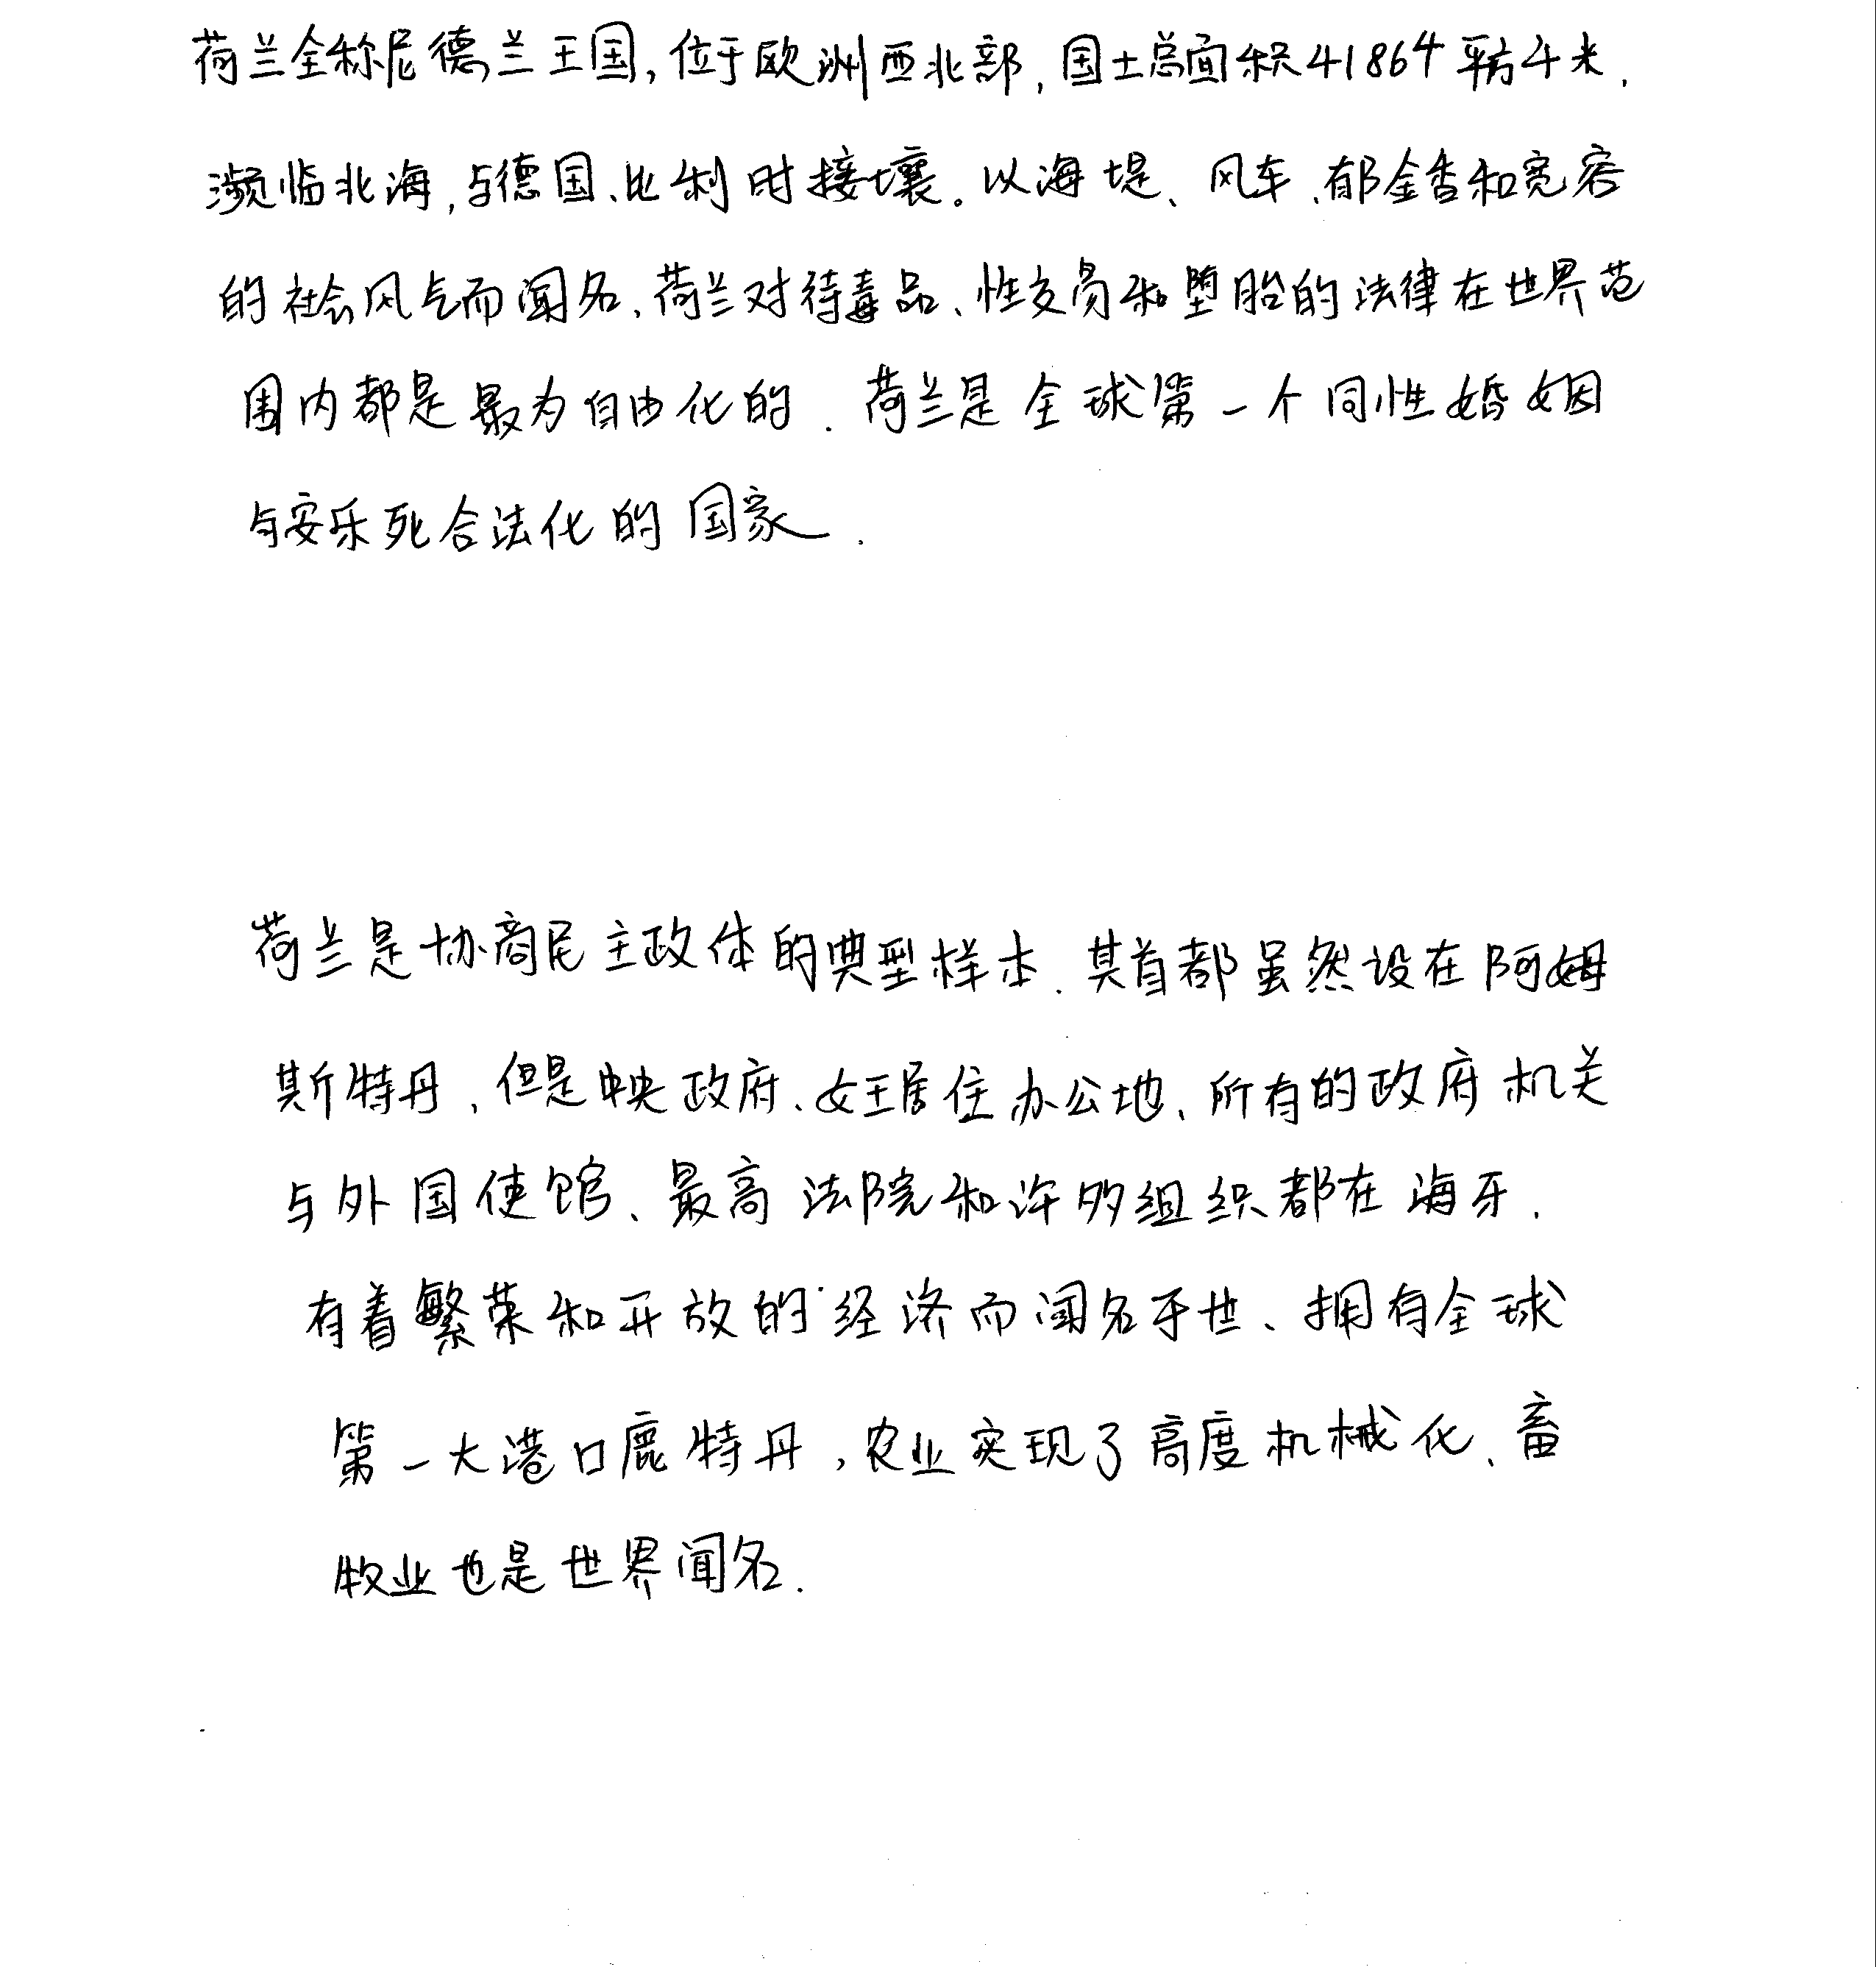 荷兰全称尼德兰王国,位于欧洲西北部,国土总面积41864平方千米.
濒临北海,与德国、比利时接壤。以海堤、风车、郁金香和宽容
的社会风气而闻名.荷兰对待毒品、性交易和堕胎的法律在世界范
围内都是最为自由化的.荷兰是全球第一个同性婚姻
与安乐死合法化的国家.
荷兰是协商民主政体的典型样本.其首都虽然设在阿姆
斯特丹,但是中央政府、女王居住办公地、所有的政府机关
与外国使馆、最高法院和许多组织都在海牙.
有着繁荣和开放的经济而闻名于世、拥有全球
第一大港口鹿特丹,农业实现了高度机械化、畜
牧业也是世界闻名.